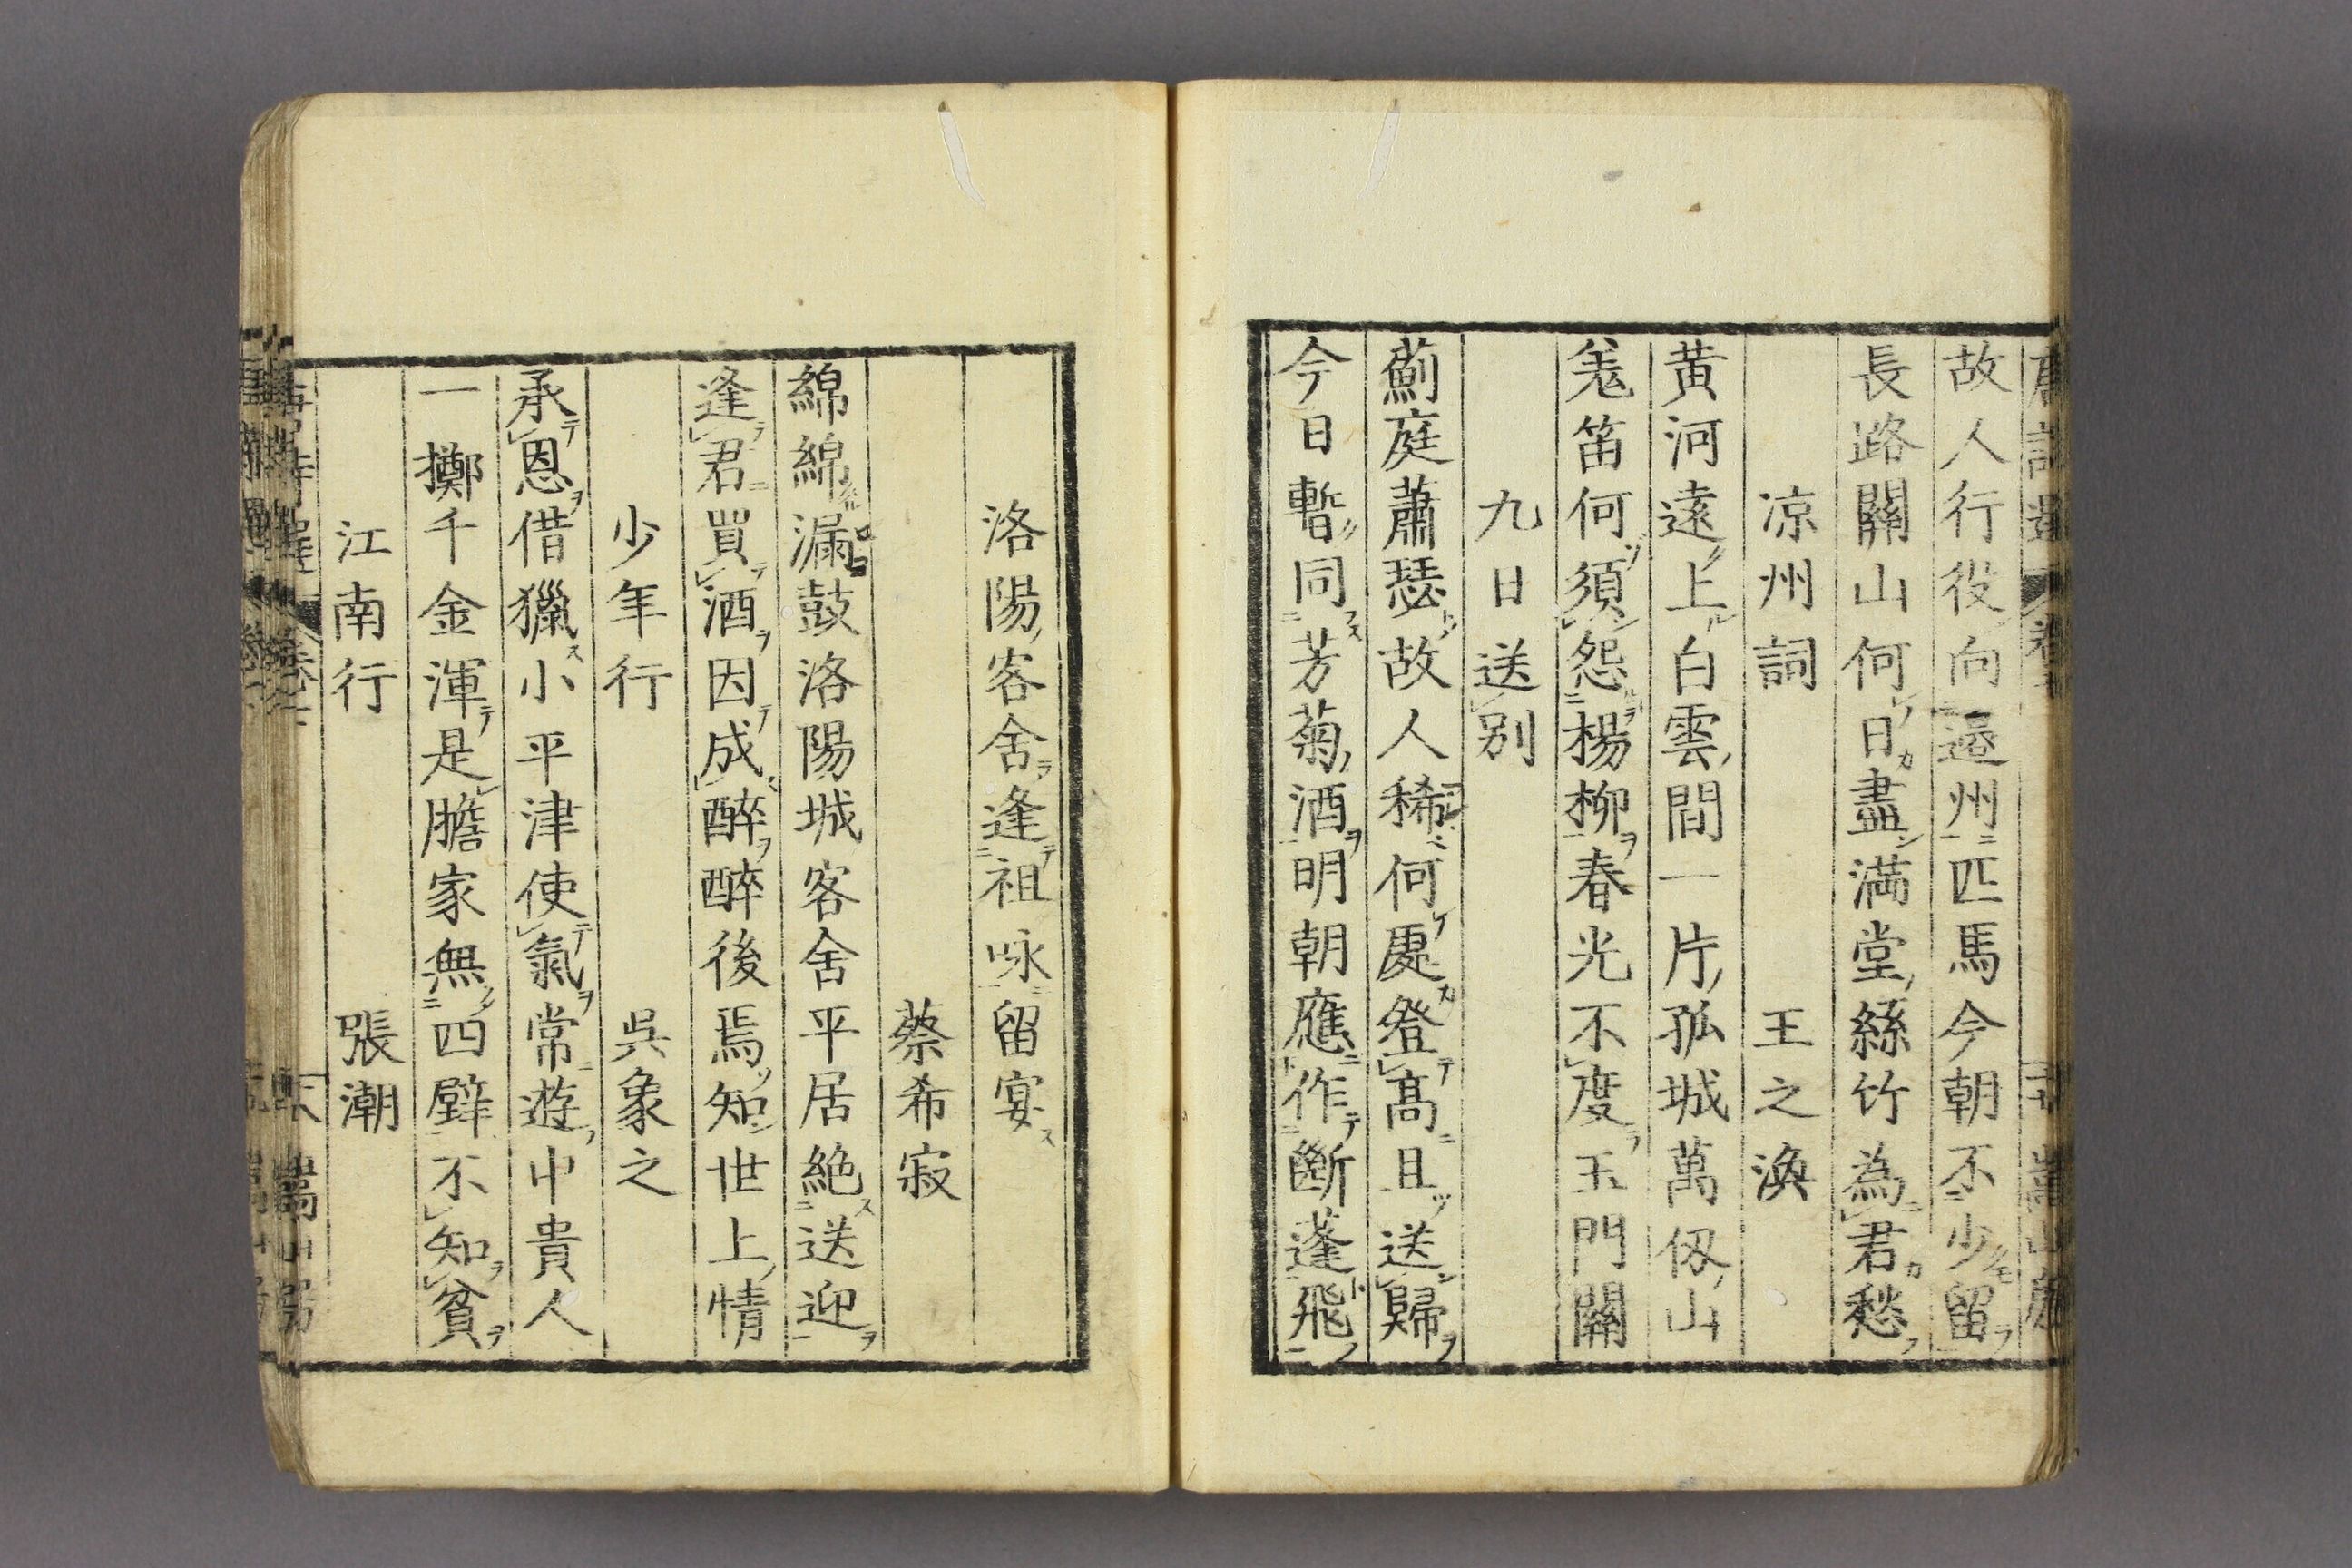 故人行役向邉州匹馬今朝不少留
長路關山何日盡滿堂絲竹為君愁
凉州詞　王之渙
黄河遠上白雲間一片孤城萬仭山
羌笛何須怨楊柳春光不度玉門關
九日送别
薊庭蕭瑟故人稀何處登髙且送歸
今日暫同芳菊酒明朝應作斷蓬飛
洛陽客舍逢祖咏留宴
蔡希寂
綿綿漏鼓洛陽城客舍平居絶送迎
逢君買酒因成醉醉後焉知世上情
少年行　吳象之
承恩借獵小平津使氣常遊中貴人
一擲千金渾是膽家無四壁不知貧
江南行　張潮